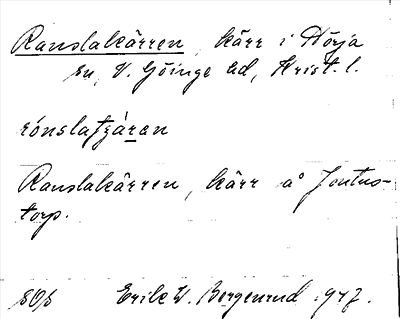 Ranslakärren, kärr i Nörja
sn, V. Göinge hd, Krist. l.
rónslatʒáran
Ranslakärren, kärr å Jontus-
torp.
Erik W. Bergenrud 1947.